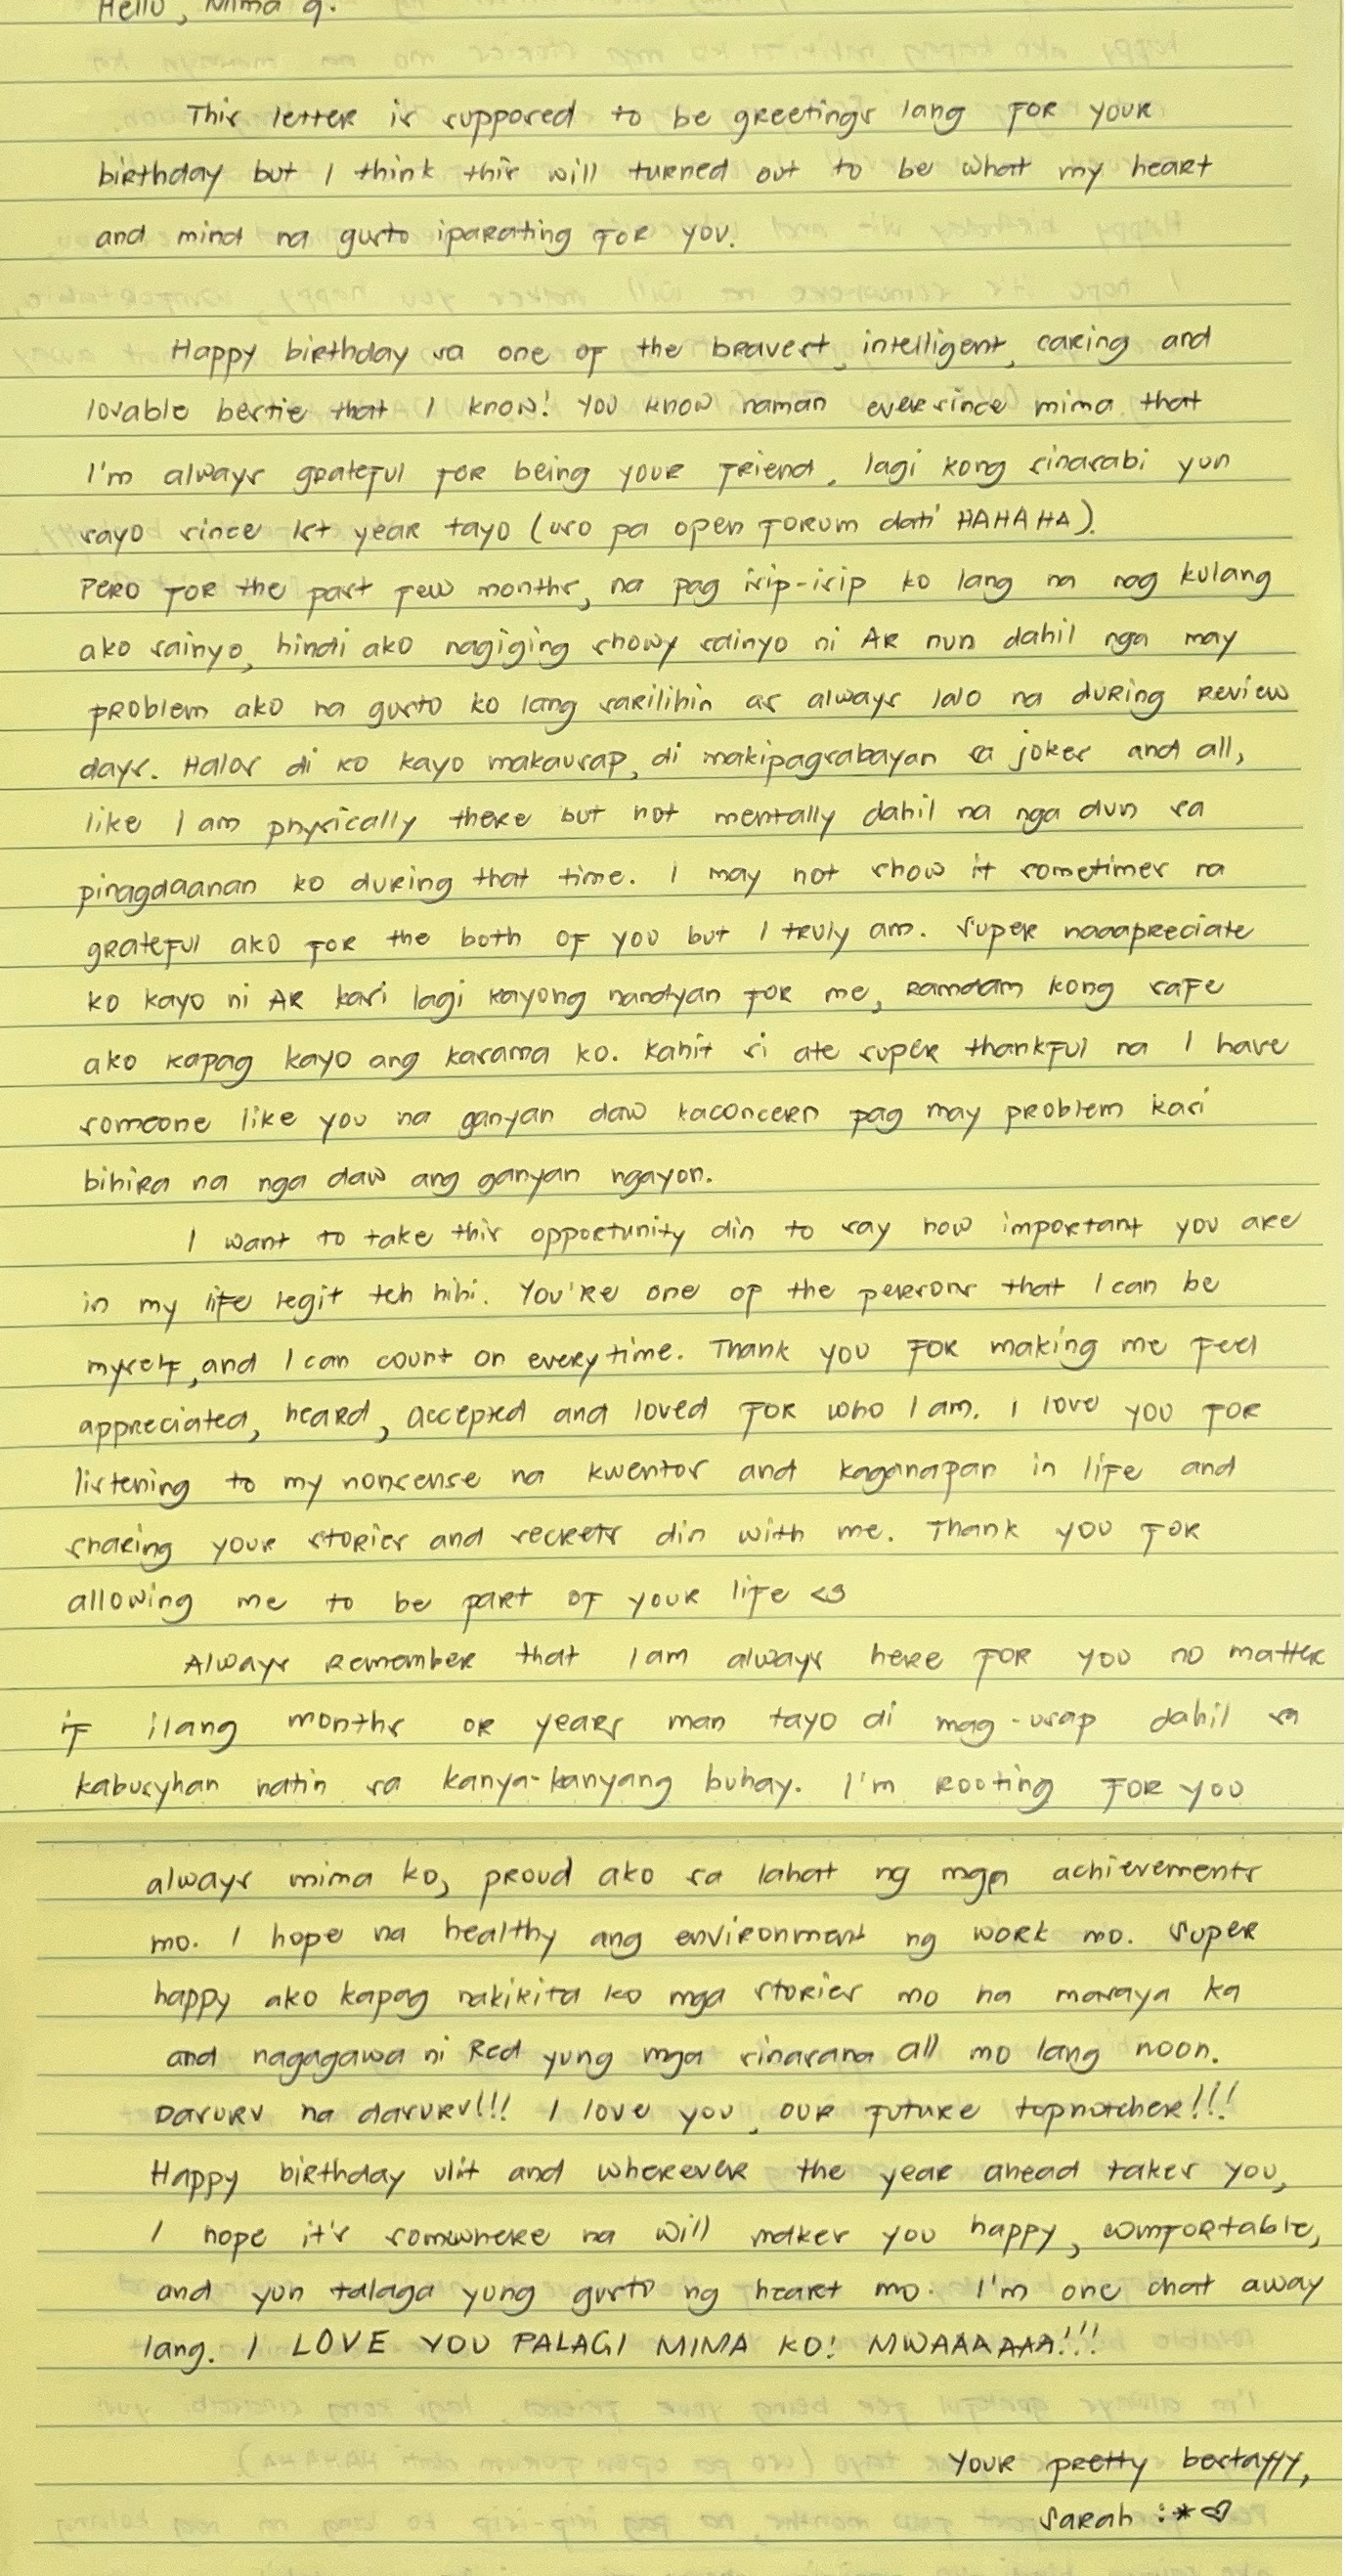 Hello, Mima q.
This letter is supposed to be greetings lang for your
birthday but I think this will turned out to be what my heart
and mind na gusto iparating for you.
Happy birthday sa one of the bravest, intelligent, caring and
lovable bestie that I know! You know naman eversince mima that
I'm always grateful for being your friend, lagi kong sinasabi yun
sayo since 1st year tayo (uso pa open forum dati HAHAHA).
Pero for the past few months, na pag isip-isip ko lang na nag kulang
ako sainyo, hindi ako nagiging showy sainyo ni AR nun dahil nga may
problem ako na gusto ko lang sarilihin as always lalo na during review
days. Halos di ko kayo makausap, di makipagsabayan sa jokes and all,
like I am physically there but not mentally dahil na nga dun sa
pinagdaanan ko during that time. I may not show it sometimes na
grateful ako for the both of you but I truly am. Super naaapreciate
ko kayo ni AR kasi lagi kayong nandyan for me, ramdam kong safe
ako kapag kayo ang kasama ko. Kahit si ate super thankful na I have
someone like you na ganyan daw kaconcern pag may problem kasi
bihira na nga daw ang ganyan ngayon.
I want to take this opportunity din to say how important you are
in my life legit teh hihi. You're one of the persons that I can be
myself, and I can count on everytime. Thank you for making me feel
appreciated, heard, accepted and loved for who I am. I love you for
listening to my nonsense na kwentos and kaganapan in life and
sharing your stories and secrets din with me. Thank you for
allowing me to be part of your life <3
Always remember that I am always here for you no matter
if ilang months or years man tayo di mag-usap dahil sa
kabusyhan natin sa kanya-kanyang buhay. I'm rooting for you
always mima ko, proud ako sa lahat ng mga achievements
mo. I hope na healthy ang environment ng work mo. Super
happy ako kapag nakikita ko mga stories mo na masaya ka
and nagagawa ni Red yung mga sinasana all mo lang noon.
Dasurv na dasurv!!! I love you, our future topnotcher!!!
Happy birthday ulit and wherever the year ahead takes you,
I hope it's somewhere na will makes you happy, comfortable,
and yun talaga yung gusto ng heart mo. I'm one chat away
lang. I LOVE YOU PALAGI MIMA KO! MWAAAAAA!!!
Your pretty bestayyy,
Sarah :*♡